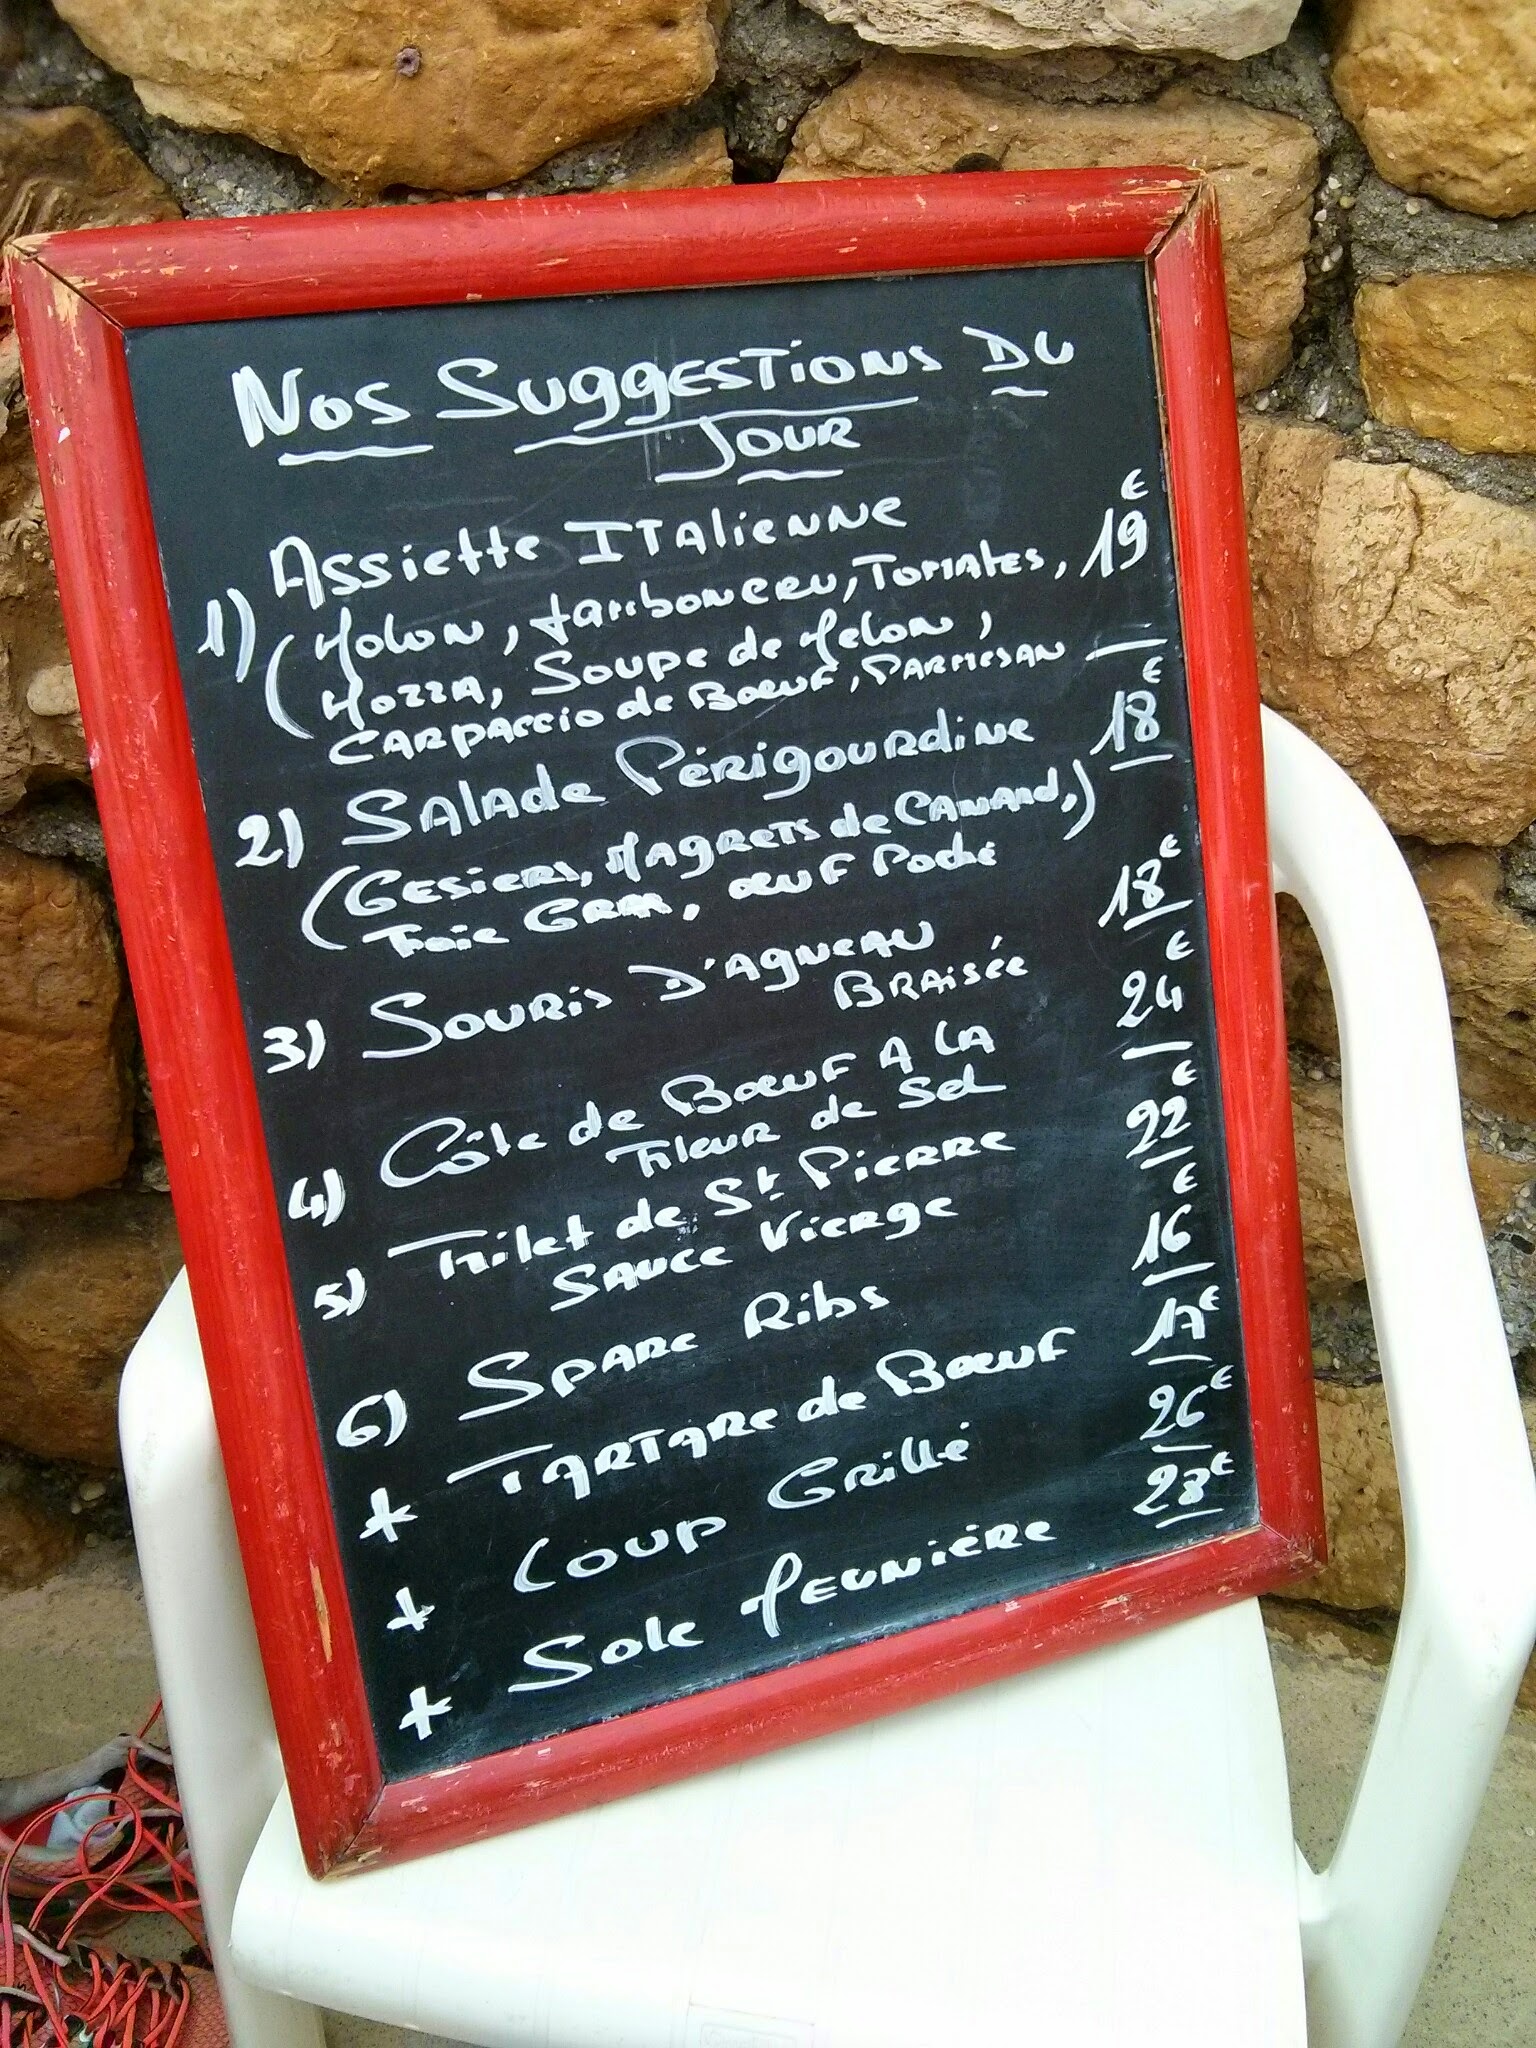 Nos Suggestions Du
Jour
Assiette Italienne
1) (Melon, Jambon cru, Tomates, 19€
Mozza, Soupe de Melon,
Carpaccio de Bœuf, Parmesan
2) Salade Périgourdine 18€
(Gesiers, Magrets de Canard,)
Foie Gras, œuf Poché
3) Souris D'Agneau 18€
Braisée
4) Côte de Bœuf A la 24€
Fleur de Sel
5) Filet de St Pierre 22€
Sauce Vierge
6) Spare Ribs 16€
+ Tartare de Bœuf 17€
+ Loup Grillé 26€
+ Sole Meunière 28€